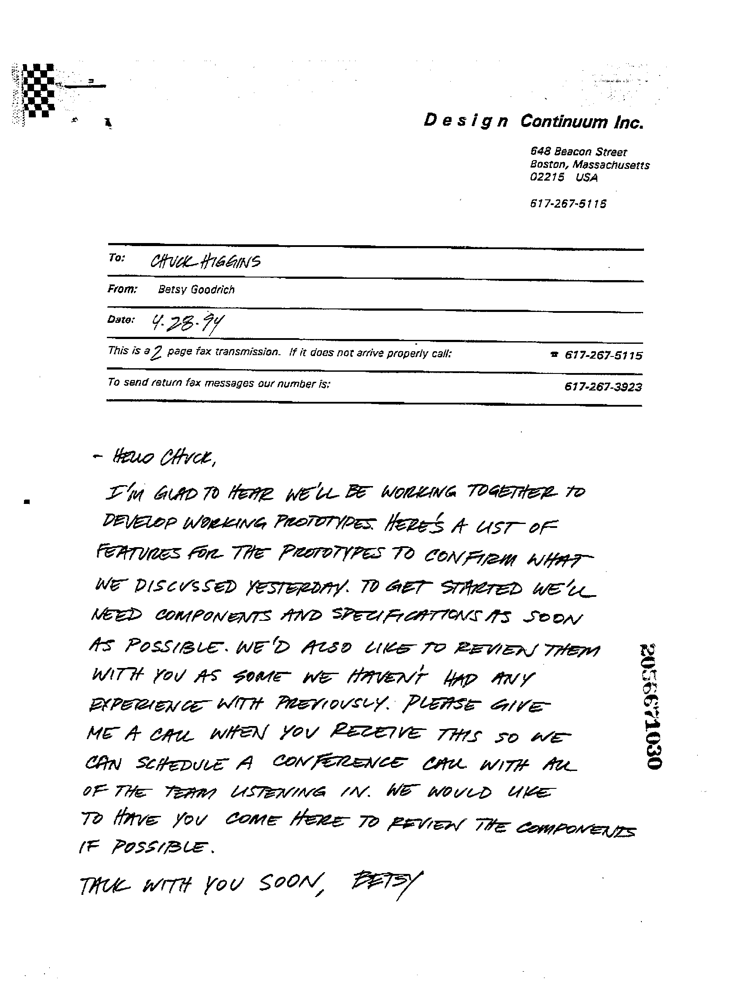 Design Continuum Inc.
648 Beacon Street
Boston, Massachusetts
02215 USA
617-267-5115
To: CHUCK HIGGINS
From: Betsy Goodrich
Date: 4.28.94
This is a 2 page fax transmission. If it does not arrive properly call: ☎ 617-267-5115
To send return fax messages our number is: 617-267-3923
- HELLO CHUCK,
I'M GLAD TO HEAR WE'LL BE WORKING TOGETHER TO
DEVELOP WORKING PROTOTYPES. HERE'S A LIST OF
FEATURES FOR THE PROTOTYPES TO CONFIRM WHAT
WE DISCUSSED YESTERDAY. TO GET STARTED WE'LL
NEED COMPONENTS AND SPECIFICATIONS AS SOON
AS POSSIBLE. WE'D ALSO LIKE TO REVIEW THEM
WITH YOU AS SOME WE HAVEN'T HAD ANY
EXPERIENCE WITH PREVIOUSLY. PLEASE GIVE
ME A CALL WHEN YOU RECEIVE THIS SO WE
CAN SCHEDULE A CONFERENCE CALL WITH ALL
OF THE TEAM LISTENING IN. WE WOULD LIKE
TO HAVE YOU COME HERE TO REVIEW THE COMPONENTS
IF POSSIBLE.
TALK WITH YOU SOON, BETSY
2056671030